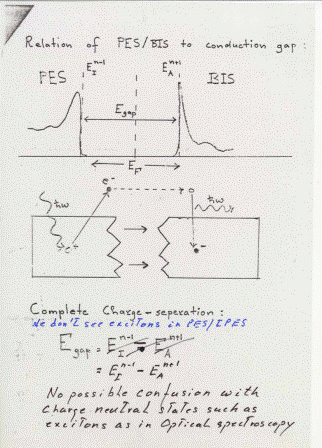 Relation of PES/BIS to conduction gap:
PES E_I^{n-1} E_A^{n+1} BIS
E_gap
E_F
e^-
ħω ħω
e^+ -
Complete Charge-seperation:
We don't see excitons in PES/IPES
E_gap = E_I^{n-1} - E_A^{n+1}
= E_I^{n-1} - E_A^{n+1}
No possible confusion with
Charge neutral states such as
excitons as in Optical spectroscopy